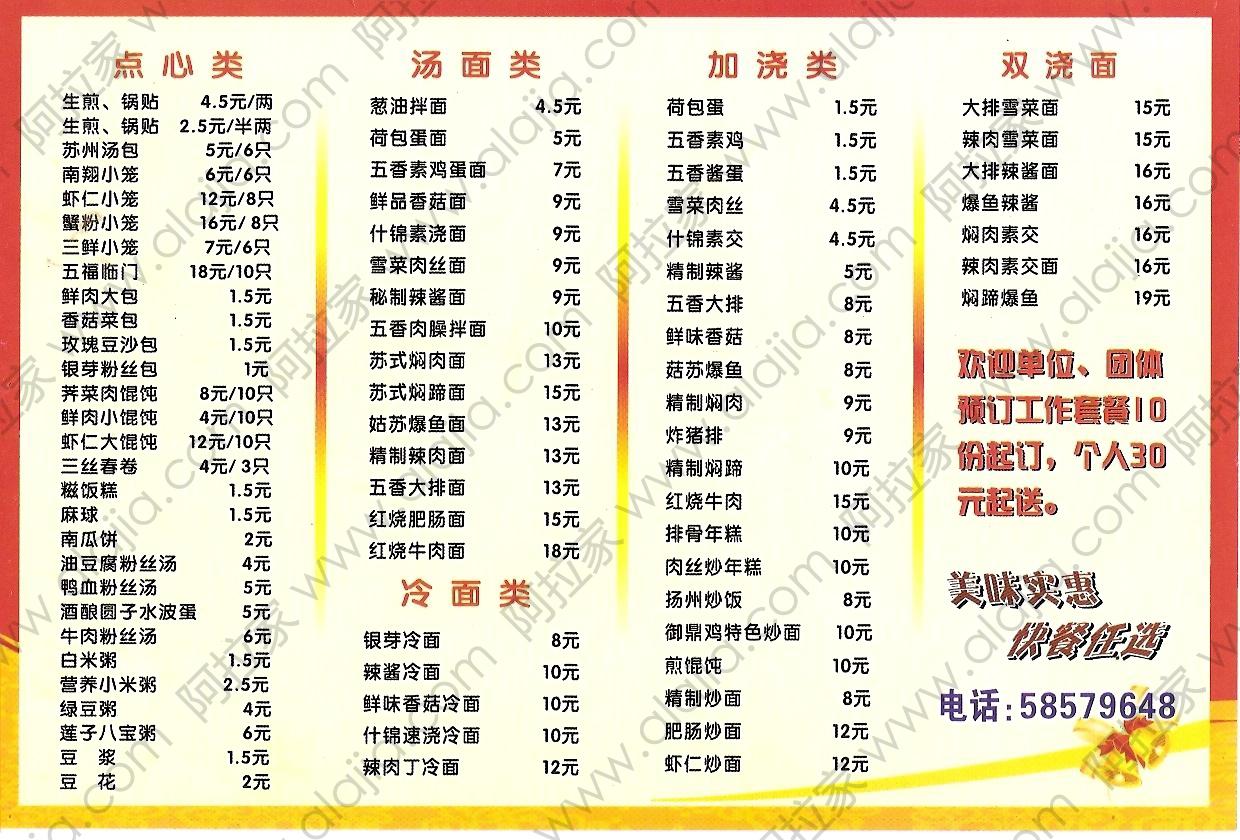 点心类
生煎、锅贴 4.5元/两
生煎、锅贴 2.5元/半两
苏州汤包 5元/6只
南翔小笼 6元/6只
虾仁小笼 12元/8只
蟹粉小笼 16元/ 8只
三鲜小笼 7元/6只
五福临门 18元/10只
鲜肉大包 1.5元
香菇菜包 1.5元
玫瑰豆沙包 1.5元
银芽粉丝包 1元
荠菜肉馄饨 8元/10只
鲜肉小馄饨 4元/10只
虾仁大馄饨 12元/10只
三丝春卷 4元/ 3只
糍饭糕 1.5元
麻球 1.5元
南瓜饼 2元
油豆腐粉丝汤 4元
鸭血粉丝汤 5元
酒酿圆子水波蛋 5元
牛肉粉丝汤 6元
白米粥 1.5元
营养小米粥 2.5元
绿豆粥 4元
莲子八宝粥 6元
豆 浆 1.5元
豆 花 2元
汤面类
葱油拌面 4.5元
荷包蛋面 5元
五香素鸡蛋面 7元
鲜品香菇面 9元
什锦素浇面 9元
雪菜肉丝面 9元
秘制辣酱面 9元
五香肉臊拌面 10元
苏式焖肉面 13元
苏式焖蹄面 15元
姑苏爆鱼面 13元
精制辣肉面 13元
五香大排面 13元
红烧肥肠面 15元
红烧牛肉面 18元
冷面类
银芽冷面 8元
辣酱冷面 10元
鲜味香菇冷面 10元
什锦速浇冷面 10元
辣肉丁冷面 12元
加浇类
荷包蛋 1.5元
五香素鸡 1.5元
五香酱蛋 1.5元
雪菜肉丝 4.5元
什锦素交 4.5元
精制辣酱 5元
五香大排 8元
鲜味香菇 8元
菇苏爆鱼 8元
精制焖肉 9元
炸猪排 9元
精制焖蹄 10元
红烧牛肉 15元
排骨年糕 10元
肉丝炒年糕 10元
扬州炒饭 8元
御鼎鸡特色炒面 10元
煎馄饨 10元
精制炒面 8元
肥肠炒面 12元
虾仁炒面 12元
双浇面
大排雪菜面 15元
辣肉雪菜面 15元
大排辣酱面 16元
爆鱼辣酱 16元
焖肉素交 16元
辣肉素交面 16元
焖蹄爆鱼 19元
欢迎单位、团体
预订工作套餐10
份起订，个人30
元起送。
美味实惠
快餐任选
电话:58579648
阿拉家 www.alajia.com